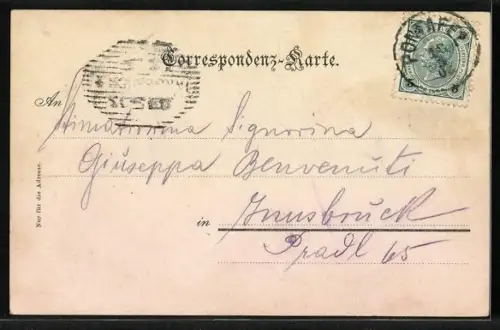 Correspondenz-Karte.
PONTAFEL
An Stimatissima Signorina
Giuseppa Benvenuti
in Innsbruck
Pradl 65
Nur für die Adresse.